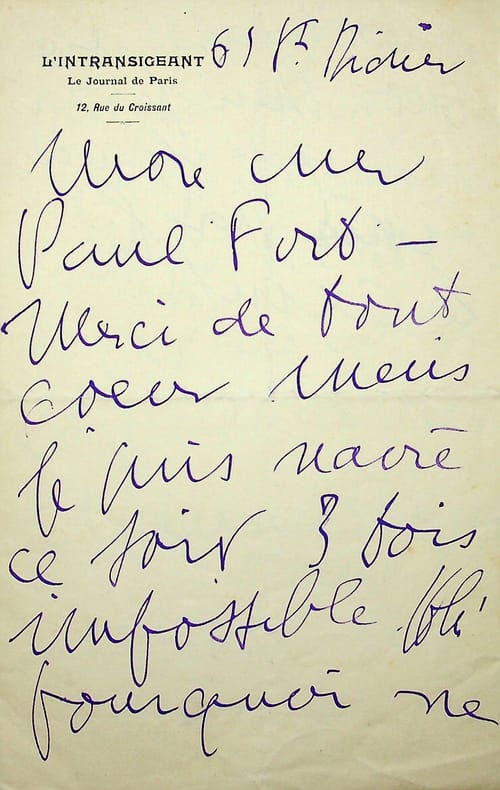 L'INTRANSIGEANT
Le Journal de Paris
12, Rue du Croissant
61 St. Didier
Mon cher
Paul Fort –
Merci de tout
coeur mais
je suis navré
ce soir 3 fois
impossible
pourquoi ne